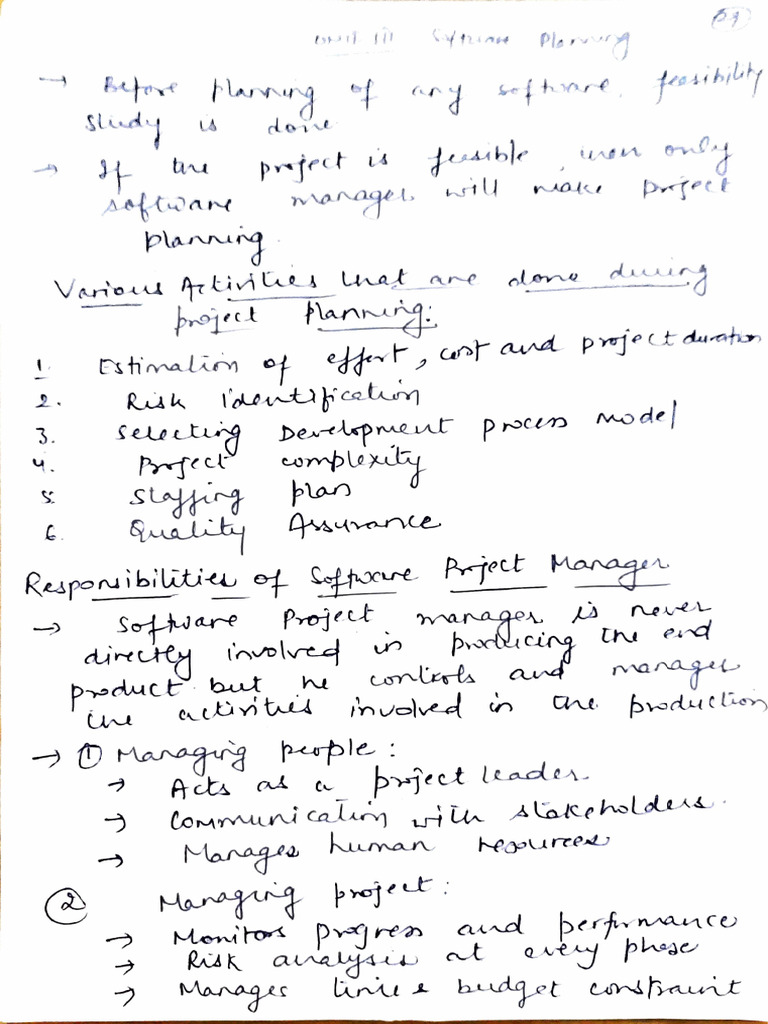 59
Unit III Software Planning
→ Before planning of any software, feasibility
study is done
→ If the project is feasible then only
software manager will make project
planning.
Various Activities that are done during
project planning:
1. Estimation of effort, cost and project duration
2. Risk Identification
3. Selecting Development process model
4. Project complexity
5. Staffing plan
6. Quality Assurance
Responsibilities of Software Project Manager
→ Software Project manager is never
directly involved in producing the end
product but he controls and manages
the activities involved in the production
→ ① Managing people:
→ Acts as a project leader
→ Communication with stakeholders.
→ Manages human resources
② Managing project:
→ Monitors progress and performance
→ Risk analysis at every phase
→ Manages time & budget constraint